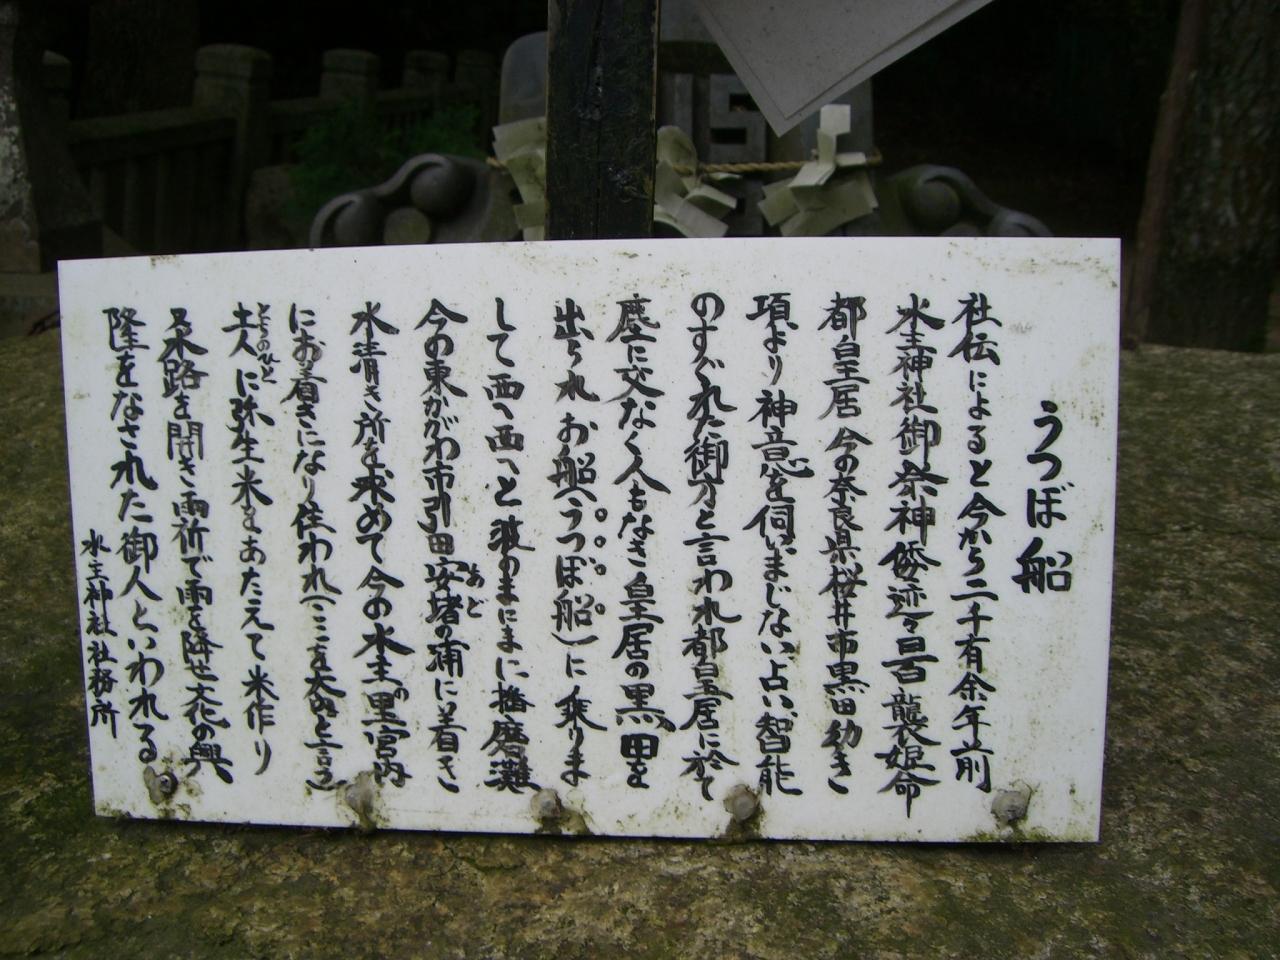 うつぼ船
社伝によると今から二千有余年前
水主神社御祭神倭迹々日百襲姫命
都皇居今の奈良県桜井市黒田幼き
項より神意を伺いまじない占い智能
のすぐれた御方と言われ都皇居に於て
塵に交なく人もなき皇居の黒田を
出られお船(うつぼ船)に乗りま
して西へ西へと波のまにまに播磨灘
今の東かがわ市引田安堵の浦に着き
あど
水清き所を求めて今の水主の里宮内
にお着きになり住われ
土人に弥生米をあたえて米作り
とちのひと
又水路を開き雨祈で雨を降せ文化の興
隆をなされた御人といわれる
水主神社社務所